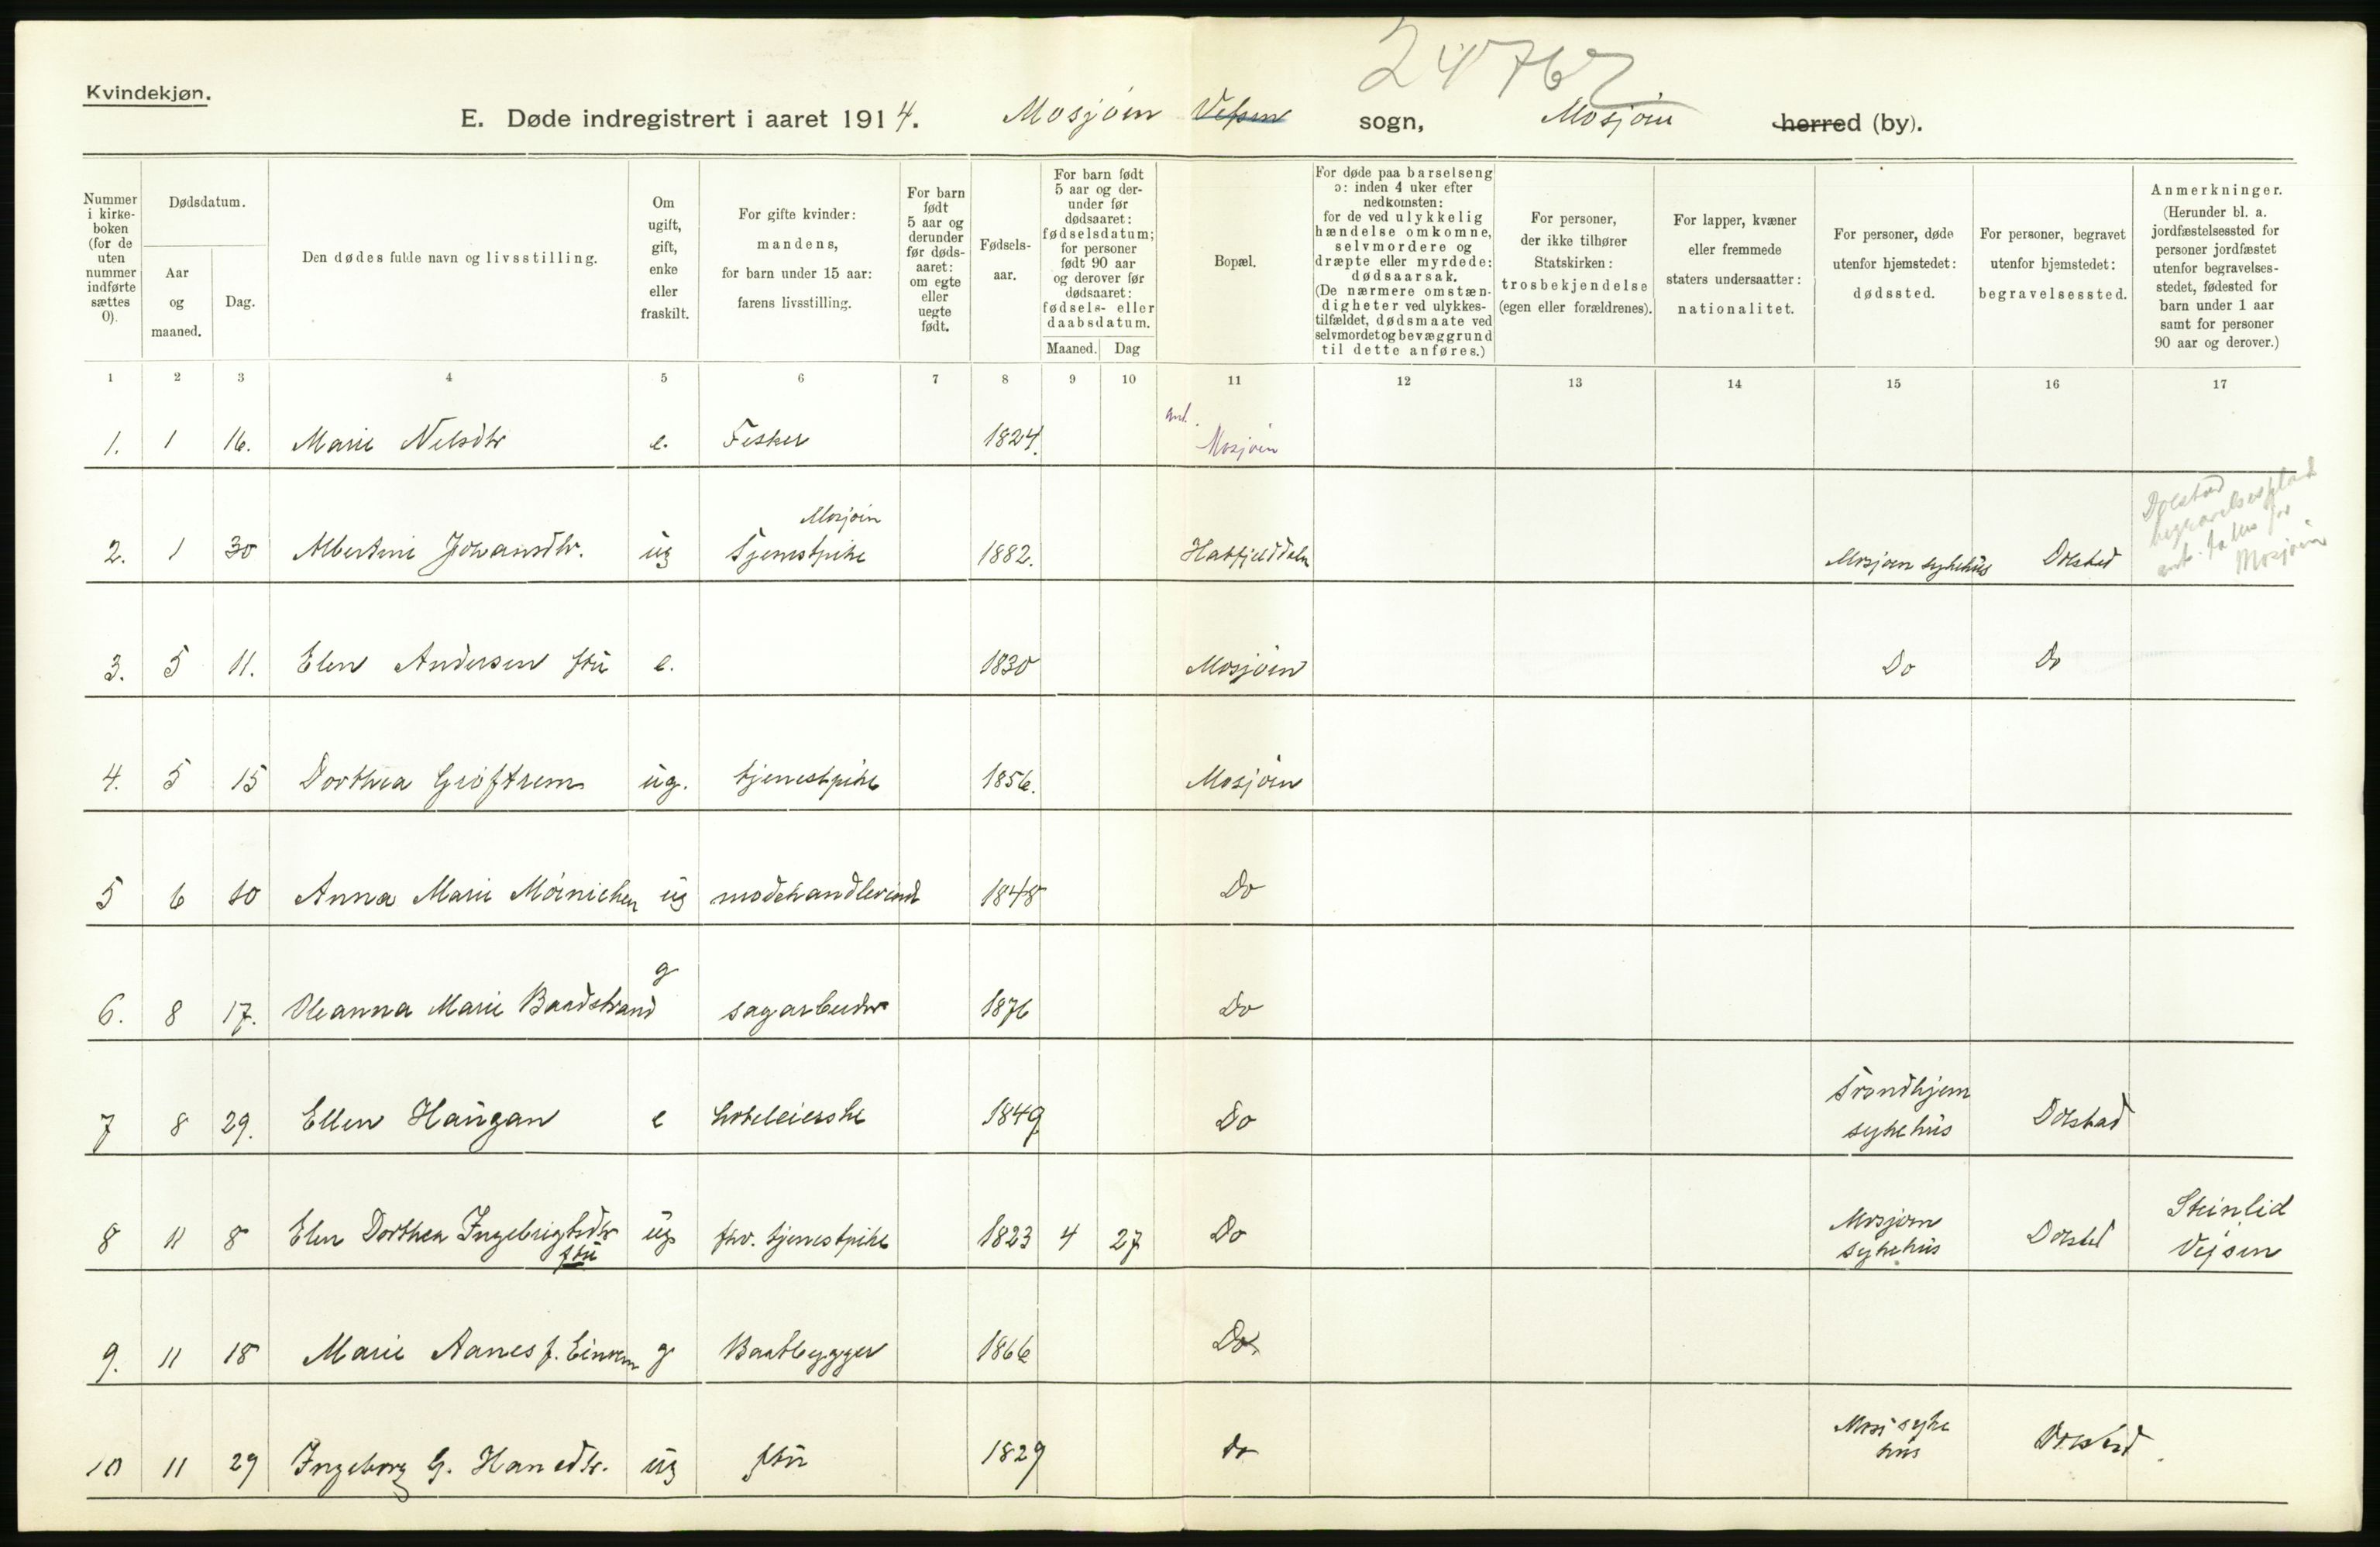 24767
Kvindekjøn.
E. Døde indregistrert i aaret 1914. Mosjøen Vefsn sogn, Mosjøen herred (by).
Nummer i kirke-boken (for de uten nummer indførte sættes 0).
Dødsdatum.
Aar og maaned.
Dag.
Den dødes fulde navn og livsstilling.
Om ugift, gift, enke eller fraskilt.
For gifte kvinder: mandens, for barn under 15 aar: farens livsstilling.
For barn født 5 aar og derunder før døds-aaret: om egte eller uegte født.
Fødsels-aar.
For barn født 5 aar og der-under før dødsaaret: fødselsdatum; for personer født 90 aar og derover før dødsaaret: fødsels- eller daabsdatum.
Maaned. Dag
Bopæl.
For døde paa barselseng ɔ: inden 4 uker efter nedkomsten: for de ved ulykkelig hændelse omkomne, selvmordere og dræpte eller myrdede: dødsaarsak. (De nærmere omstæn-digheter ved ulykkes-tilfældet, dødsmaate ved selvmordet og bevæggrund til dette anføres.)
For personer, der ikke tilhører Statskirken: trosbekjendelse (egen eller forældrenes).
For lapper, kvæner eller fremmede staters undersaatter: nationalitet.
For personer, døde utenfor hjemstedet: dødssted.
For personer, begravet utenfor hjemstedet: begravelsessted.
Anmerkninger. (Herunder bl. a. jordfæstelsessted for personer jordfæstet utenfor begravelses-stedet, fødested for barn under 1 aar samt for personer 90 aar og derover.)
1 2 3 4 5 6 7 8 9 10 11 12 13 14 15 16 17
1. 1 16. Marie Nelsdtr e. Fisker 1824. ant. Mosjøen
2. 1 30 Albertine Johansdtr. ug Mosjøen Tjenestpike 1882. Hatfjelddalen Mosjøen sykehus Dolstad
Dolstad begravelsesplads ant. fælles for Mosjøen
3. 5 11. Elen Andersen fttu e. 1830 Mosjøen Do Do
4. 5 15 Dorthea Grøftrem ug. tjenestpike 1856. Mosjøen
5 6 10 Anna Marie Møinichen ug modehandlerinde 1848 Do
6. 8 17. Oleanna Marie Baadstrand g sagarbeider 1876 Do
7 8 29. Ellen Haugan e hoteleierske 1849 Do Trondhjem sykehus Dolstad
8 11 8 Elen Dorthea Ingebrigtsdtr fttu ug fhv. tjenestpike 1823 4 27 Do Mosjøen sykehus Dolstad Steinlid Vefsen
9. 11 18 Marie Aanes f. Einrem g Baatbygger 1866 Do
10 11 29 Ingeborg G. Hansdtr. ug fttu 1829 do Mosj syke hus Dolstad.